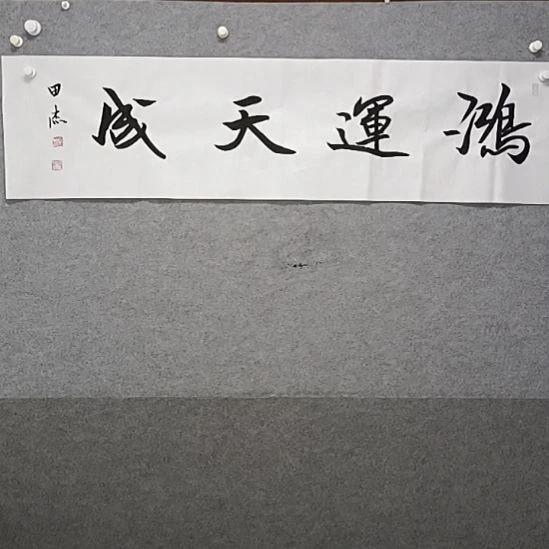 鴻運天成
田杰